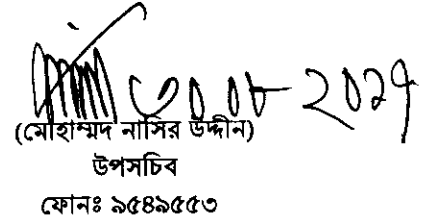 ৩০.০৮-২০১৭
(মোহাম্মদ নাসির উদ্দীন)
উপসচিব
ফোনঃ ৯৫৪৯৫৫৩